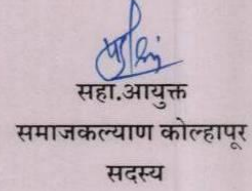 सहा.आयुक्त
समाजकल्याण कोल्हापूर
सदस्य